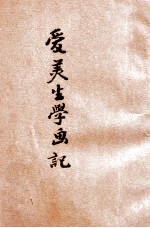 爱美生學画記